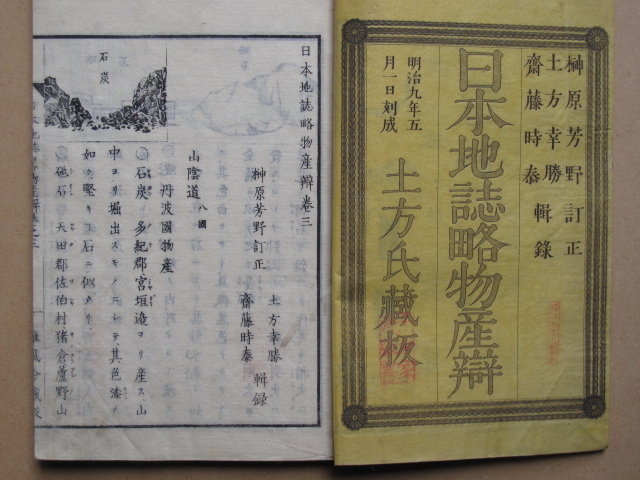 榊原芳野訂正
土方幸勝
齋藤時泰 輯錄
日本地誌略物産辯
明治九年五
月一日刻成
土方氏藏板
日本地誌略物産辨卷三
榊原芳野訂正
土方幸勝
齋藤時泰 輯錄
山陰道 八國
丹波國物産
石炭 多紀郡宮垣邉ヨリ産ス山
中ヨリ堀出スモノニシテ其色漆ノ
如ク堅キ丁石ニ似タリ
砥石 天田郡佐伯村猪倉蘆野山
石炭